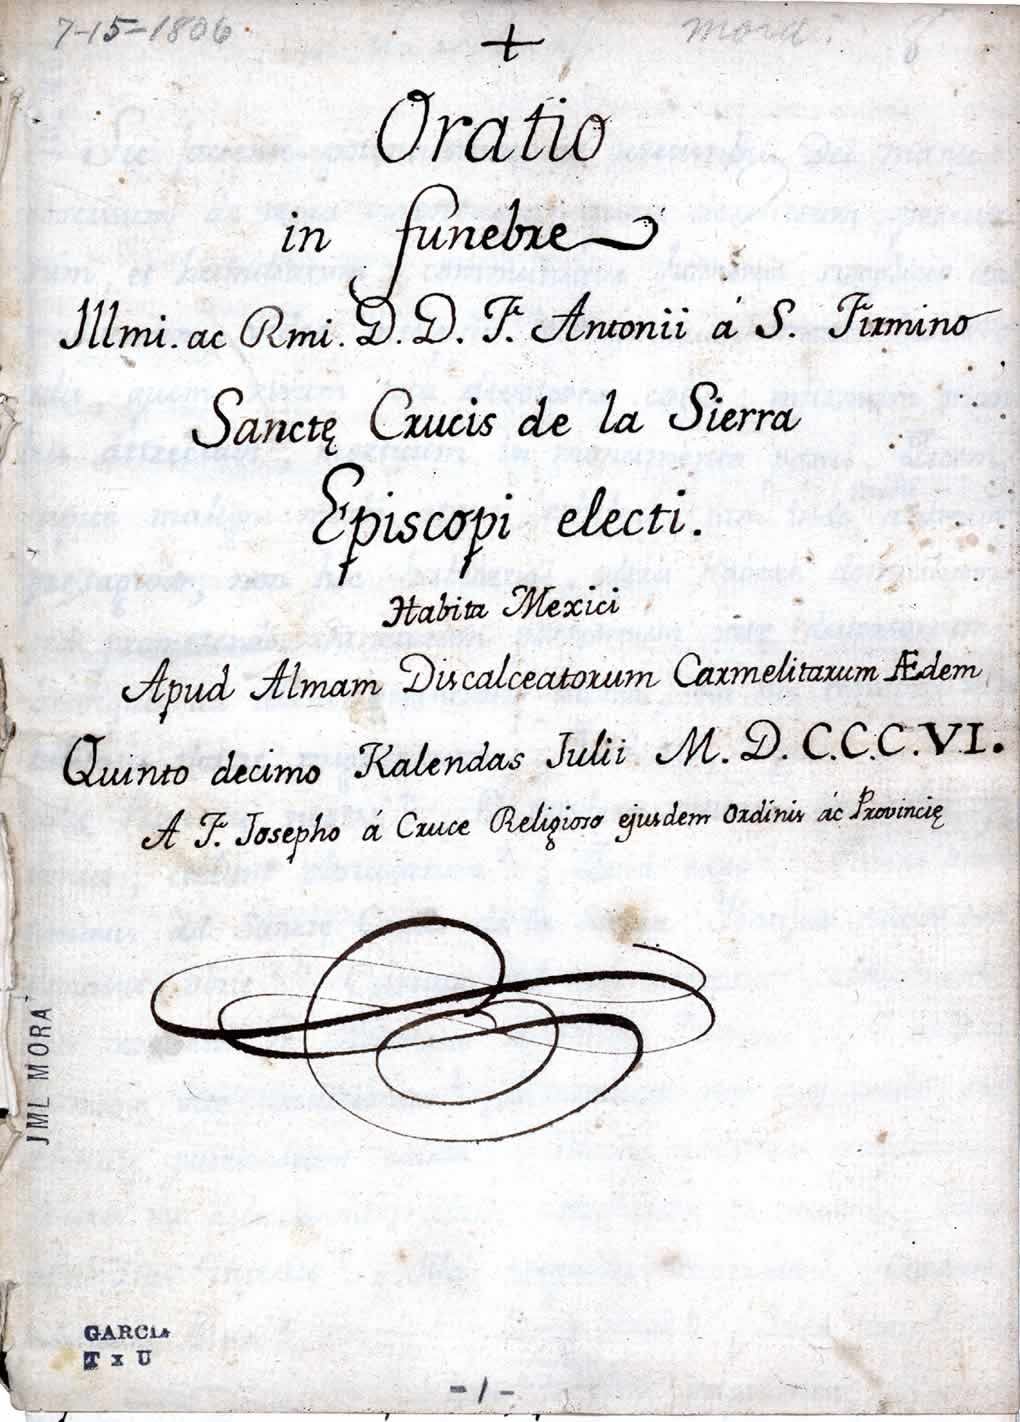 7-15-1806
Mora.
+
Oratio
in funebre
Illmi. ac Rmi. D. D. Fr. Antonii á S. Firmino
Sanctę Crucis de la Sierra
Episcopi electi.
Habita Mexici
Apud Almam Discalceatorum Carmelitarum Ædem
Quinto decimo Kalendas Julii M. D. C.C.C.VI.
A Fr. Josepho á Cruce Religioso ejusdem Ordinis ác Provincię
JML MORA
GARCIA
T x U
- 1 -